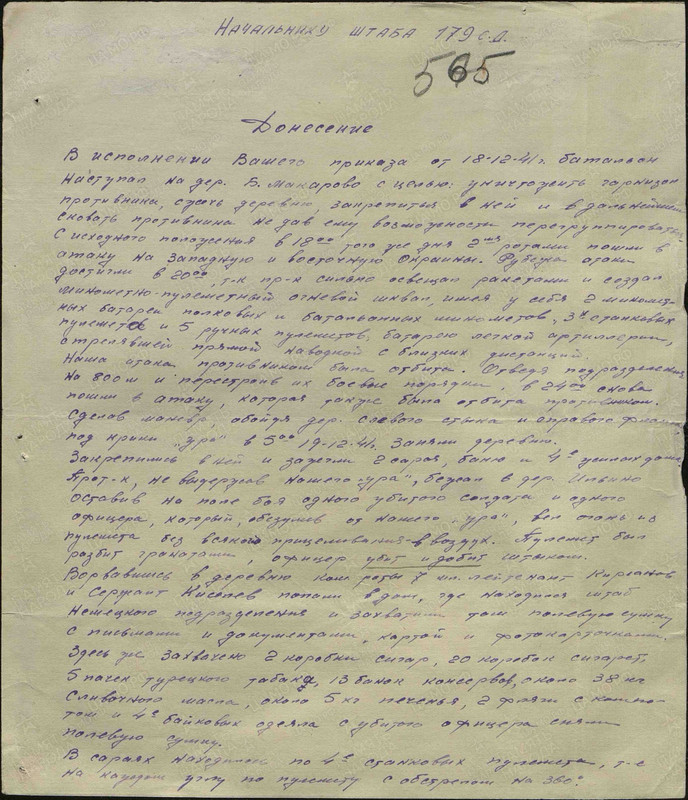 Начальнику штаба 179 с.д.
565
Донесение
В исполнении Вашего приказа от 18-12-41 г. батальон
наступал на дер. Б. Макарово с целью: уничтожить гарнизон
противника, сжечь деревню, закрепиться в ней и в дальнейшем
сковать противника не дав ему возможности перегруппироваться
С исходного положения в 18⁰⁰ того же дня 2мя ротами пошли в
атаку на западную и восточную окраины. Рубежа атаки
достигли в 20⁰⁰, т.к пр-к сильно освещал ракетами и создал
минометно-пулеметный огневой шквал, имея у себя 2 миномет-
ных батареи полковых и батальонных минометов, 3х станковых
пулемета и 5 ручных пулеметов, батарею легкой артиллерии,
стрелявшей прямой наводкой с близких дистанций.
Наша атака противником была отбита. Отведя подразделения
на 800 м и перестроив их боевые порядки, в 24⁰⁰ снова
пошли в атаку, которая также была отбита противником.
Сделав маневр, обойдя дер. с левого стыка и справого фланга
под крики "ура" в 5⁰⁰ 19-12-41г. заняли деревню.
Закрепились в ней и зажгли 2 сарая, баню и 4е жилых дома
Прот-к, не выдержав нашего "ура", бежал в дер. Ильино
оставив на поле боя одного убитого солдата и одного
офицера, который, обезумев от нашего "ура", вел огонь из
пулемета без всякого прицеливания - в воздух. Пулемет был
разбит гранатами, офицер убит и добит штыком.
Ворвавшись в деревню ком роты 7 мл. лейтенант
и Сержант попали в дом, где находился штаб
немецкого подразделения и захватили там полевую сумку
с письмами и документами, картой и фотокарточками.
Здесь же захвачено 2 коробки сигар, 20 коробок сигарет,
5 пачек турецкого табака, 13 банок консервов, около 38 кг
сливочного масла, около 5 кг печенья, 2 фляги с компо-
том и 4е байковых одеяла с убитого офицера сняли
полевую сумку.
В сараях находилось по 4е станковых пулемета, т-е
на каждом углу по пулемету с обстрелом на 360°.